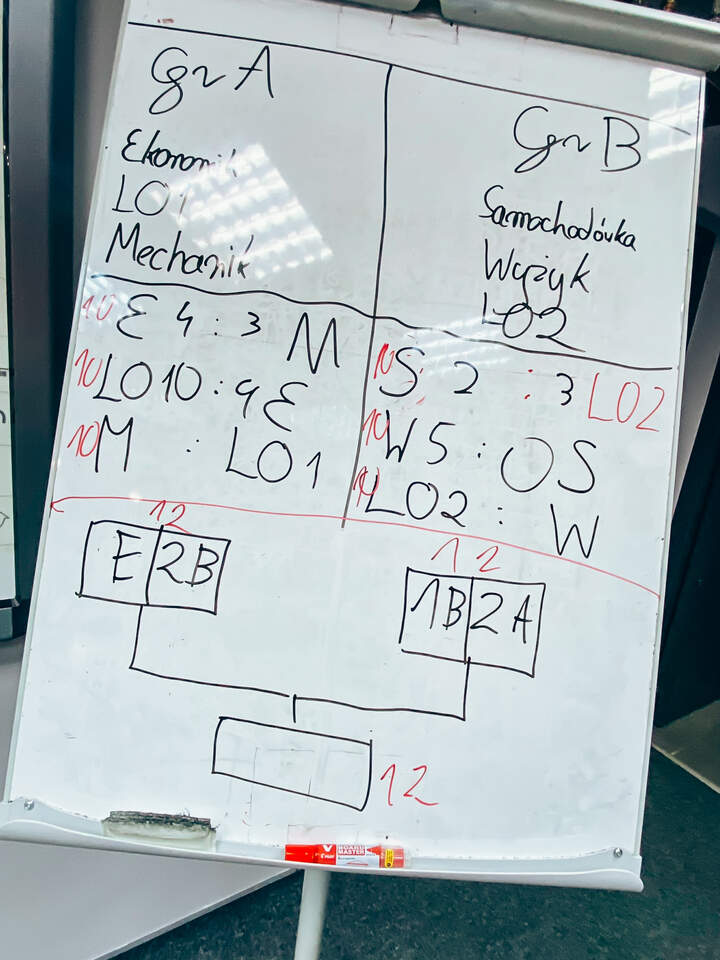 Gr A
Ekonomik
LO1
Mechanik
Gr B
Samochodówka
Wyżyk
LO2
10 E 4 : 3 M
10 LO1 0 : 4 E
10 M : LO1
10 S 2 : 3 LO2
10 W 5 : 0 S
10 LO2 : W
12
E 2B
12
1B 2A
12
V
BOARD
MASTER